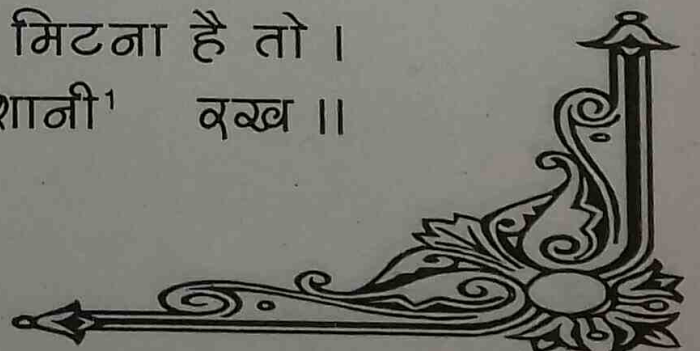 मिटना है तो ।
शानी¹ रख ॥